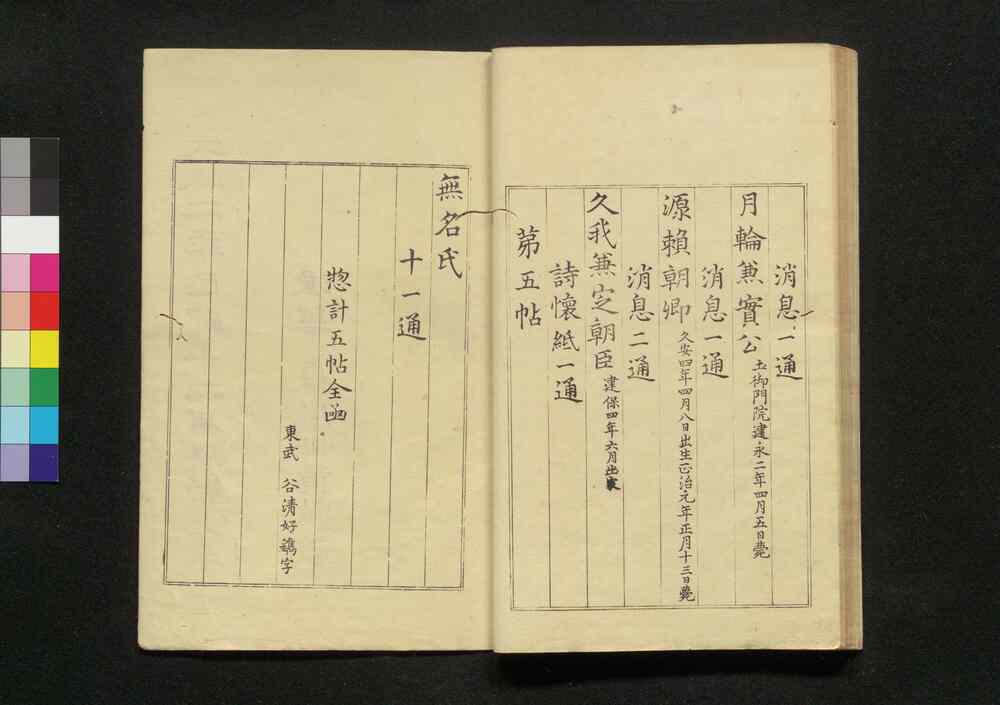 消息一通
月輪兼實公 土御門院建永二年四月五日薨
消息一通
源頼朝卿 久安四年四月八日出生正治元年正月十三日薨
消息二通
久我兼定朝臣 建保四年六月出家
詩懐紙一通
第五帖
無名氏
十一通
惣計五帖全函
東武 谷清好鐫字